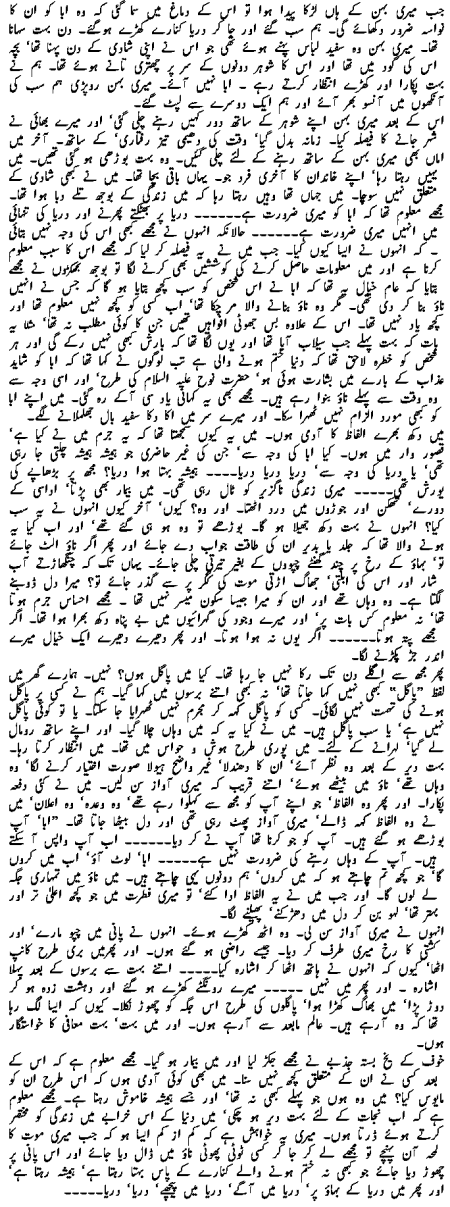 جب میری بہن کے ہاں لڑکا پیدا ہوا تو اس کے دماغ میں سما گئی کہ وہ ابا کو ان کا
نواسہ ضرور دکھائے گی۔ ہم سب گئے اور جا کر دریا کنارے کھڑے ہوگئے۔ دن بہت سہانا
تھا۔ میری بہن وہ سفید لباس پہنے ہوئے تھی جو اس نے اپنی شادی کے دن پہنا تھا' بچہ
اس کی گود میں تھا اور اس کا شوہر دونوں کے سر پر چھتری تانے ہوئے تھا۔ ہم نے
بہت پکارا اور کھڑے انتظار کرتے رہے ۔ ابا نہیں آئے۔ میری بہن روپڑی ہم سب کی
آنکھوں میں آنسو بھر آئے اور ہم ایک دوسرے سے لپٹ گئے۔
اس کے بعد میری بہن اپنے شوہر کے ساتھ دور کہیں رہنے چلی گئی' اور میرے بھائی نے
شہر جانے کا فیصلہ کیا۔ زمانہ بدل گیا' وقت کی دھیمی تیز رفتاری' کے ساتھ۔ آخر میں
اماں بھی میری بہن کے ساتھ رہنے کے لئے چلی گئیں۔ وہ بہت بوڑھی ہو گئی تھیں۔ میں
یہیں رہتا رہا' اپنے خاندان کا آخری فرد جو۔ یہاں باقی بچا تھا۔ میں نے کبھی شادی کے
متعلق نہیں سوچا۔ میں جہاں تھا وہیں رہتا رہا کہ میں زندگی کے بوجھ تلے دبا ہوا تھا۔
مجھے معلوم تھا کہ ابا کو میری ضرورت ہے------ دریا پر بھٹکتے پھرنے اور دریا کی تنہائی
میں انہیں میری ضرورت ہے------- حالانکہ انہوں نے مجھے کبھی اس کی وجہ نہیں بتائی
۔ کہ انہوں نے ایسا کیوں کیا۔ جب میں نے ۔ یہ فیصلہ کر لیا کہ مجھے اس کا سبب معلوم
کرنا ہے اور میں معلومات حاصل کرنے کی کوششیں بھی کرنے لگا تو بوجھ بھکڑوں نے مجھے
بتایا کہ عام خیال یہ تھا کہ ابا نے اس شخص کو سب کچھ بتایا ہو گا کہ جس نے انہیں
ناؤ بنا کر دی تھی۔ مگر وہ ناؤ بنانے والا مر چکا تھا' اب کسی کو کچھ نہیں معلوم تھا اور
کچھ یاد نہیں تھا۔ اس کے علاوہ بس جھوٹی افواہیں تھیں جن کا کوئی مطلب نہ تھا' مثلا یہ
بات کہ بہت پہلے جب سیلاب آیا تھا اور یوں لگا تھا کہ بارش کبھی نہیں رکے گی اور ہر
شخص کو خطرہ لاحق تھا کہ دنیا ختم ہونے والی ہے تب لوگوں نے کہا تھا کہ ابا کو شاید
عذاب کے بارے میں بشارت ہوئی ہو' حضرت نوح علیہ السلام کی طرح' اور اسی وجہ سے
وہ وقت سے پہلے ناؤ بنوا رہے ہیں۔ مجھے کبھی یہ کہانی یاد سی آکے رہ گئی۔ میں اپنے ابا
کو کبھی مورد الزام نہیں ٹھہرا سکا۔ اور میرے سر میں اکا دکا سفید بال جھلملانے لگے۔
میں دکھ بھرے الفاظ کا آدمی ہوں۔ میں یہ کیوں سمجھتا تھا کہ یہ جرم میں نے کیا ہے'
قصور وار میں ہوں۔ کیا ابا کی وجہ سے' جن کی غیر حاضری جو ہمیشہ ہمیشہ چلتی جا رہی
تھی' یا دریا کی وجہ سے' دریا دریا دریا---- ہمیشہ بہتا ہوا دریا؟ مجھ پر بڑھاپے کی
یورش تھی----- میری زندگی ناگزیر کو ٹال رہی تھی۔ میں بیمار بھی پڑتا' اداسی کے
دورے' تھکن اور جوڑوں میں درد اٹھتا۔ اور وہ؟ کیوں' آخر کیوں انہوں نے یہ سب
کیا؟ انہوں نے بہت دکھ جھیلا ہو گا۔ بوڑھے تو وہ ہو ہی گئے تھے' اور اب کیا یہ
ہونے والا تھا کہ جلد یا بدیر ان کی طاقت جواب دے جائے اور پھر اگر ناؤ الٹ جائے
تو' بہاؤ کے رخ پر چند گھنٹے چپوؤں کے بغیر تیرتی چلی جائے۔ یہاں تک کہ چنگھاڑتے آب
شار اور اس کی ابلتی' جھاگ اڑتی موت کی کگر پر سے گذر جائے تو؟ میرا دل ڈوبنے
لگتا ہے۔ وہ وہاں تھے اور ان کو میرا جیسا سکون میسر نہیں تھا ۔ مجھے احساس جرم ہوتا
تھا' نہ معلوم کس بات پر' اور میرے وجود کی گہرائیوں میں بے پناہ دکھ بھرا ہوا تھا۔ اگر
مجھے پتہ ہوتا------ اگر یوں نہ ہوا ہوتا۔ اور پھر دھیرے دھیرے ایک خیال میرے
اندر جڑ پکڑنے لگا۔
پھر مجھ سے اگلے دن تک رکا نہیں جا رہا تھا۔ کیا میں پاگل ہوں؟ نہیں۔ ہمارے گھر میں
لفظ "پاگل" کبھی نہیں کہا جاتا تھا' نہ کبھی اتنے برسوں میں کہا گیا۔ ہم نے کسی پر پاگل
ہونے کی تہمت نہیں لگائی۔ کسی کو پاگل کہہ کر مجرم نہیں ٹھہرایا جا سکتا۔ یا تو کوئی پاگل
نہیں ہے' یا سب پاگل ہیں۔ میں نے کیا یہ کہ میں وہاں چلا گیا۔ اور اپنے ساتھ رومال
لے گیا' لہرانے کے لئے۔ میں پوری طرح ہوش و حواس میں تھا۔ میں انتظار کرتا رہا۔
بہت دیر کے بعد وہ نظر آئے' ان کا دھندلا' غیر واضح ہیولا صورت اختیار کرنے لگا' وہ
وہاں تھے' ناؤ میں بیٹھے ہوئے' اتنے قریب کہ میری آواز سن لیں۔ میں نے کئی دفعہ
پکارا۔ اور پھر وہ الفاظ' جو اپنے آپ کو مجھ سے کہلوا رہے تھے' وہ وعدہ' وہ اعلان' میں
نے وہ الفاظ کہہ ڈالے' میری آواز پھٹ رہی تھی اور دل بیٹھا جاتا تھا۔ "ابا' آپ
بوڑھے ہو گئے ہیں۔ آپ کو جو کرنا تھا آپ نے کر دیا------ اب آپ واپس آ سکتے
ہیں۔ آپ کے وہاں رہنے کی ضرورت نہیں ہے----- ابا' لوٹ آؤ' اب میں کروں
گا' جو کچھ تم چاہتے ہو کہ میں کروں' ہم دونوں یہی چاہتے ہیں۔ میں ناؤ میں تمہاری جگہ
لے لوں گا۔ اور جب میں نے یہ الفاظ ادا کئے' تو میری فطرت میں جو کچھ اعلیٰ تر اور
بہتر تھا' لہو بن کر دل میں دھڑکنے' پھیلنے لگا۔
انہوں نے میری آواز سن لی۔ وہ اٹھ کھڑے ہوئے۔ انہوں نے پانی میں چپو مارے' اور
کشتی کا رخ میری طرف کر دیا۔ جیسے راضی ہو گئے ہوں۔ اور پھرمیں بری طرح کانپ
اٹھا' کیوں کہ انہوں نے ہاتھ اٹھا کر اشارہ کیا----- اتنے بہت سے برسوں کے بعد پہلا
اشارہ ۔ اور پھر میں نہیں ----- میرے رونگٹے کھڑے ہو گئے اور دہشت زدہ ہو کر
دوڑ پڑا' میں بھاگ کھڑا ہوا' پاگلوں کی طرح اس جگہ کو چھوڑ نکلا۔ کیوں کہ ایسا لگ رہا
تھا کہ وہ آرہے ہیں۔ عالم مابعد سے آرہے ہوں۔ اور میں بہت' بہت معافی کا خواستگار
ہوں۔
خوف کے یخ بستہ جذبے نے مجھے جکڑ لیا اور میں بیمار ہو گیا۔ مجھے معلوم ہے کہ اس کے
بعد کسی نے ان کے متعلق کچھ نہیں سنا۔ میں بھی کوئی آدمی ہوں کہ اس طرح ان کو
مایوس کیا؟ میں وہ ہوں جو پہلے کبھی نہ تھا' اور جسے ہمیشہ خاموش رہنا ہے۔ مجھے معلوم
ہے کہ اب نجات کے لئے بہت دیر ہو چکی' میں دنیا کے اس خرابے میں زندگی کو مختصر
کرتے ہوئے ڈرتا ہوں۔ میری یہ خواہش ہے کہ کم از کم ایسا ہو کہ جب میری موت کا
لمحہ آن پہنچے تو مجھے لے کر جا کر کسی ٹوٹی پھوٹی ناؤ میں ڈال دیا جائے اور اس پانی پر
چھوڑ دیا جائے جو کبھی نہ ختم ہونے والے کنارے کے پاس بہتا رہتا ہے' ہمیشہ رہتا ہے'
اور پھر میں دریا کے بہاؤ پر' دریا میں آگے' دریا میں پیچھے' دریا' دریا-----